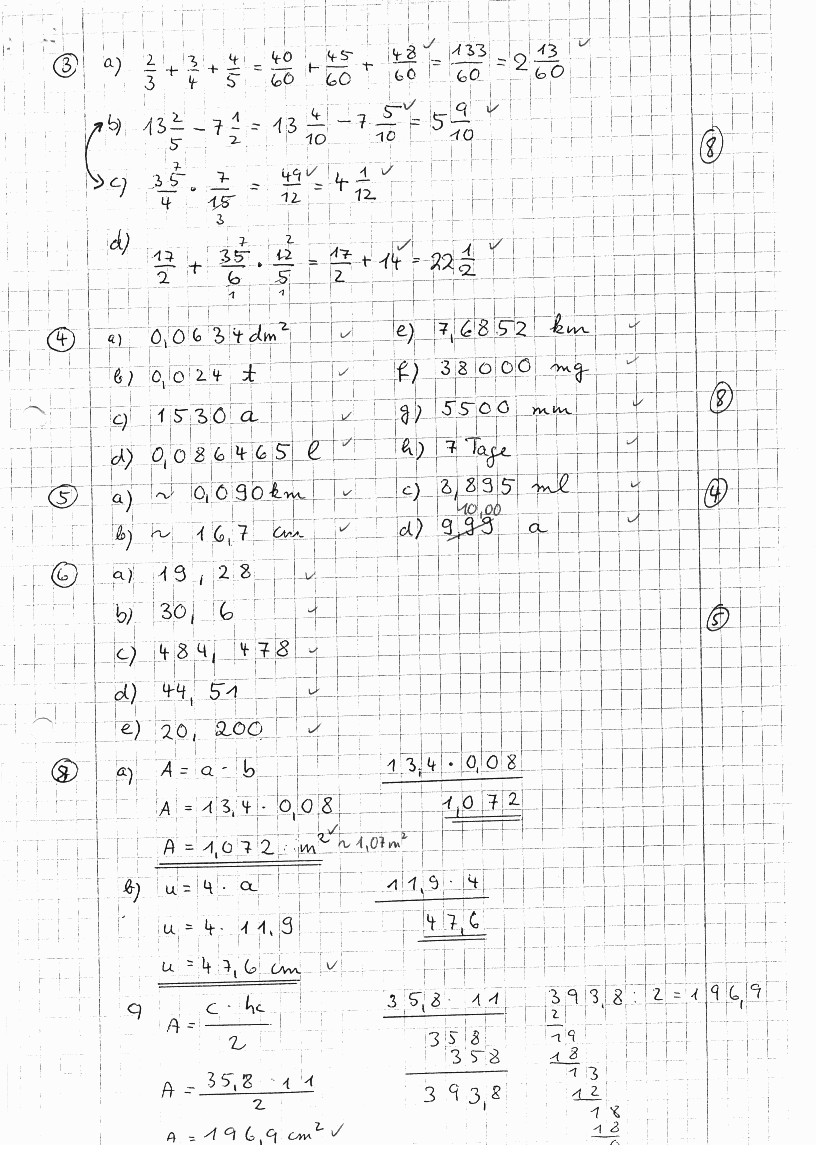 ③ a) 2/3 + 3/4 + 4/5 = 40/60 + 45/60 + 48/60 ✓ = 133/60 = 2 13/60 ✓
b) 13 2/5 - 7 1/2 = 13 4/10 - 7 5/10 ✓ = 5 9/10 ✓
⑧
c) 35/4 7 · 7/15 3 = 49/12 ✓ = 4 1/12 ✓
d) 17/2 + 35/6 7 1 · 12/5 2 1 = 17/2 + 14 ✓ = 22 1/2 ✓
④ a) 0,0634 dm² ✓ e) 7,6852 km ✓
b) 0,024 t ✓ f) 38000 mg ✓
c) 1530 a ✓ g) 5500 mm ✓ ⑧
d) 0,086465 l ✓ h) 7 Tage ✓
⑤ a) ~ 0,090 km ✓ c) 8,895 ml ✓ ④
10,00
b) ~ 16,7 cm ✓ d) 9,99 a ✓
⑥ a) 19,28 ✓
b) 30,6 ✓ ⑤
c) 484,478 ✓
d) 44,51 ✓
e) 20,200 ✓
a) A = a · b 13,4 · 0,08
A = 13,4 · 0,08 1,072
A = 1,072 m² ✓ ~ 1,07 m²
b) u = 4 · a 11,9 · 4
u = 4 · 11,9 47,6
u = 47,6 cm ✓
c) A = c · hc / 2 35,8 · 11 393,8 : 2 = 196,9
358 2
358 19
393,8 18
A = 35,8 · 11 / 2 13
12
18
A = 196,9 cm² ✓ 18
0